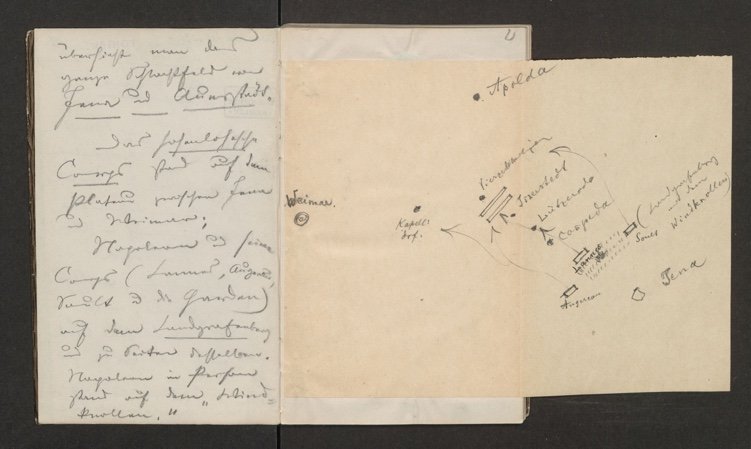 übersieht man das
ganze Schlachtfeld von
Jena und Auerstädt.
Das Hohenlohesche
Corps stand auf dem
Plateau zwischen Jena
und Weimar;
Napoleon und seine
Corps (Lannes, Augereau,
Soult u die Garden)
auf dem Landgrafenberg
und zu Seiten desselben.
Napoleon in Person
stand auf dem „Wind-
knollen."
Apolda
Vierzehnheiligen
Isserstedt
Lützeroda
Cospeda
(Landgrafenberg
und dem
Windknollen)
Weimar.
Kapell-
dorf.
Lannes
Soult
Augereau
Jena